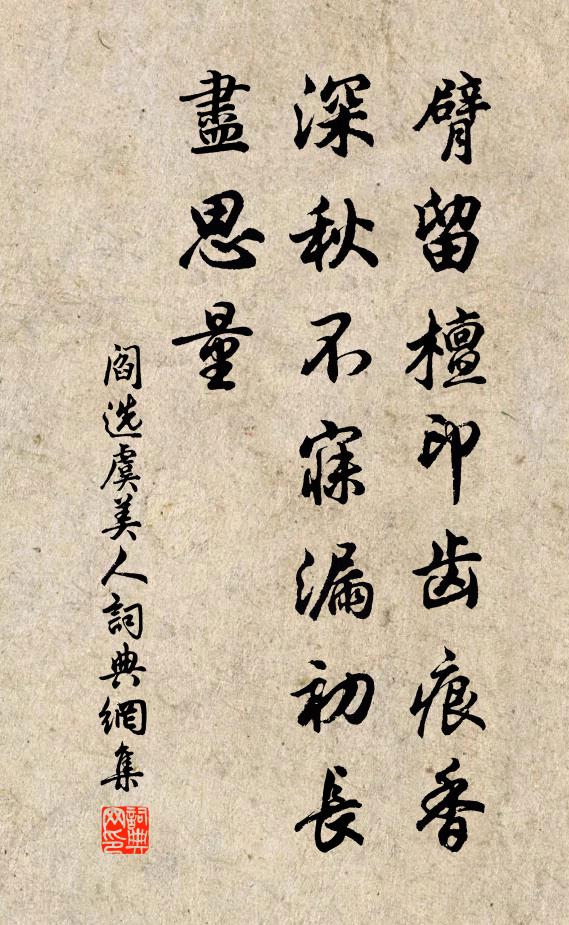 臂留檀印齿痕香
深秋不寐漏初長
盡思量
閻选虞美人詞典網集
詞典
网印